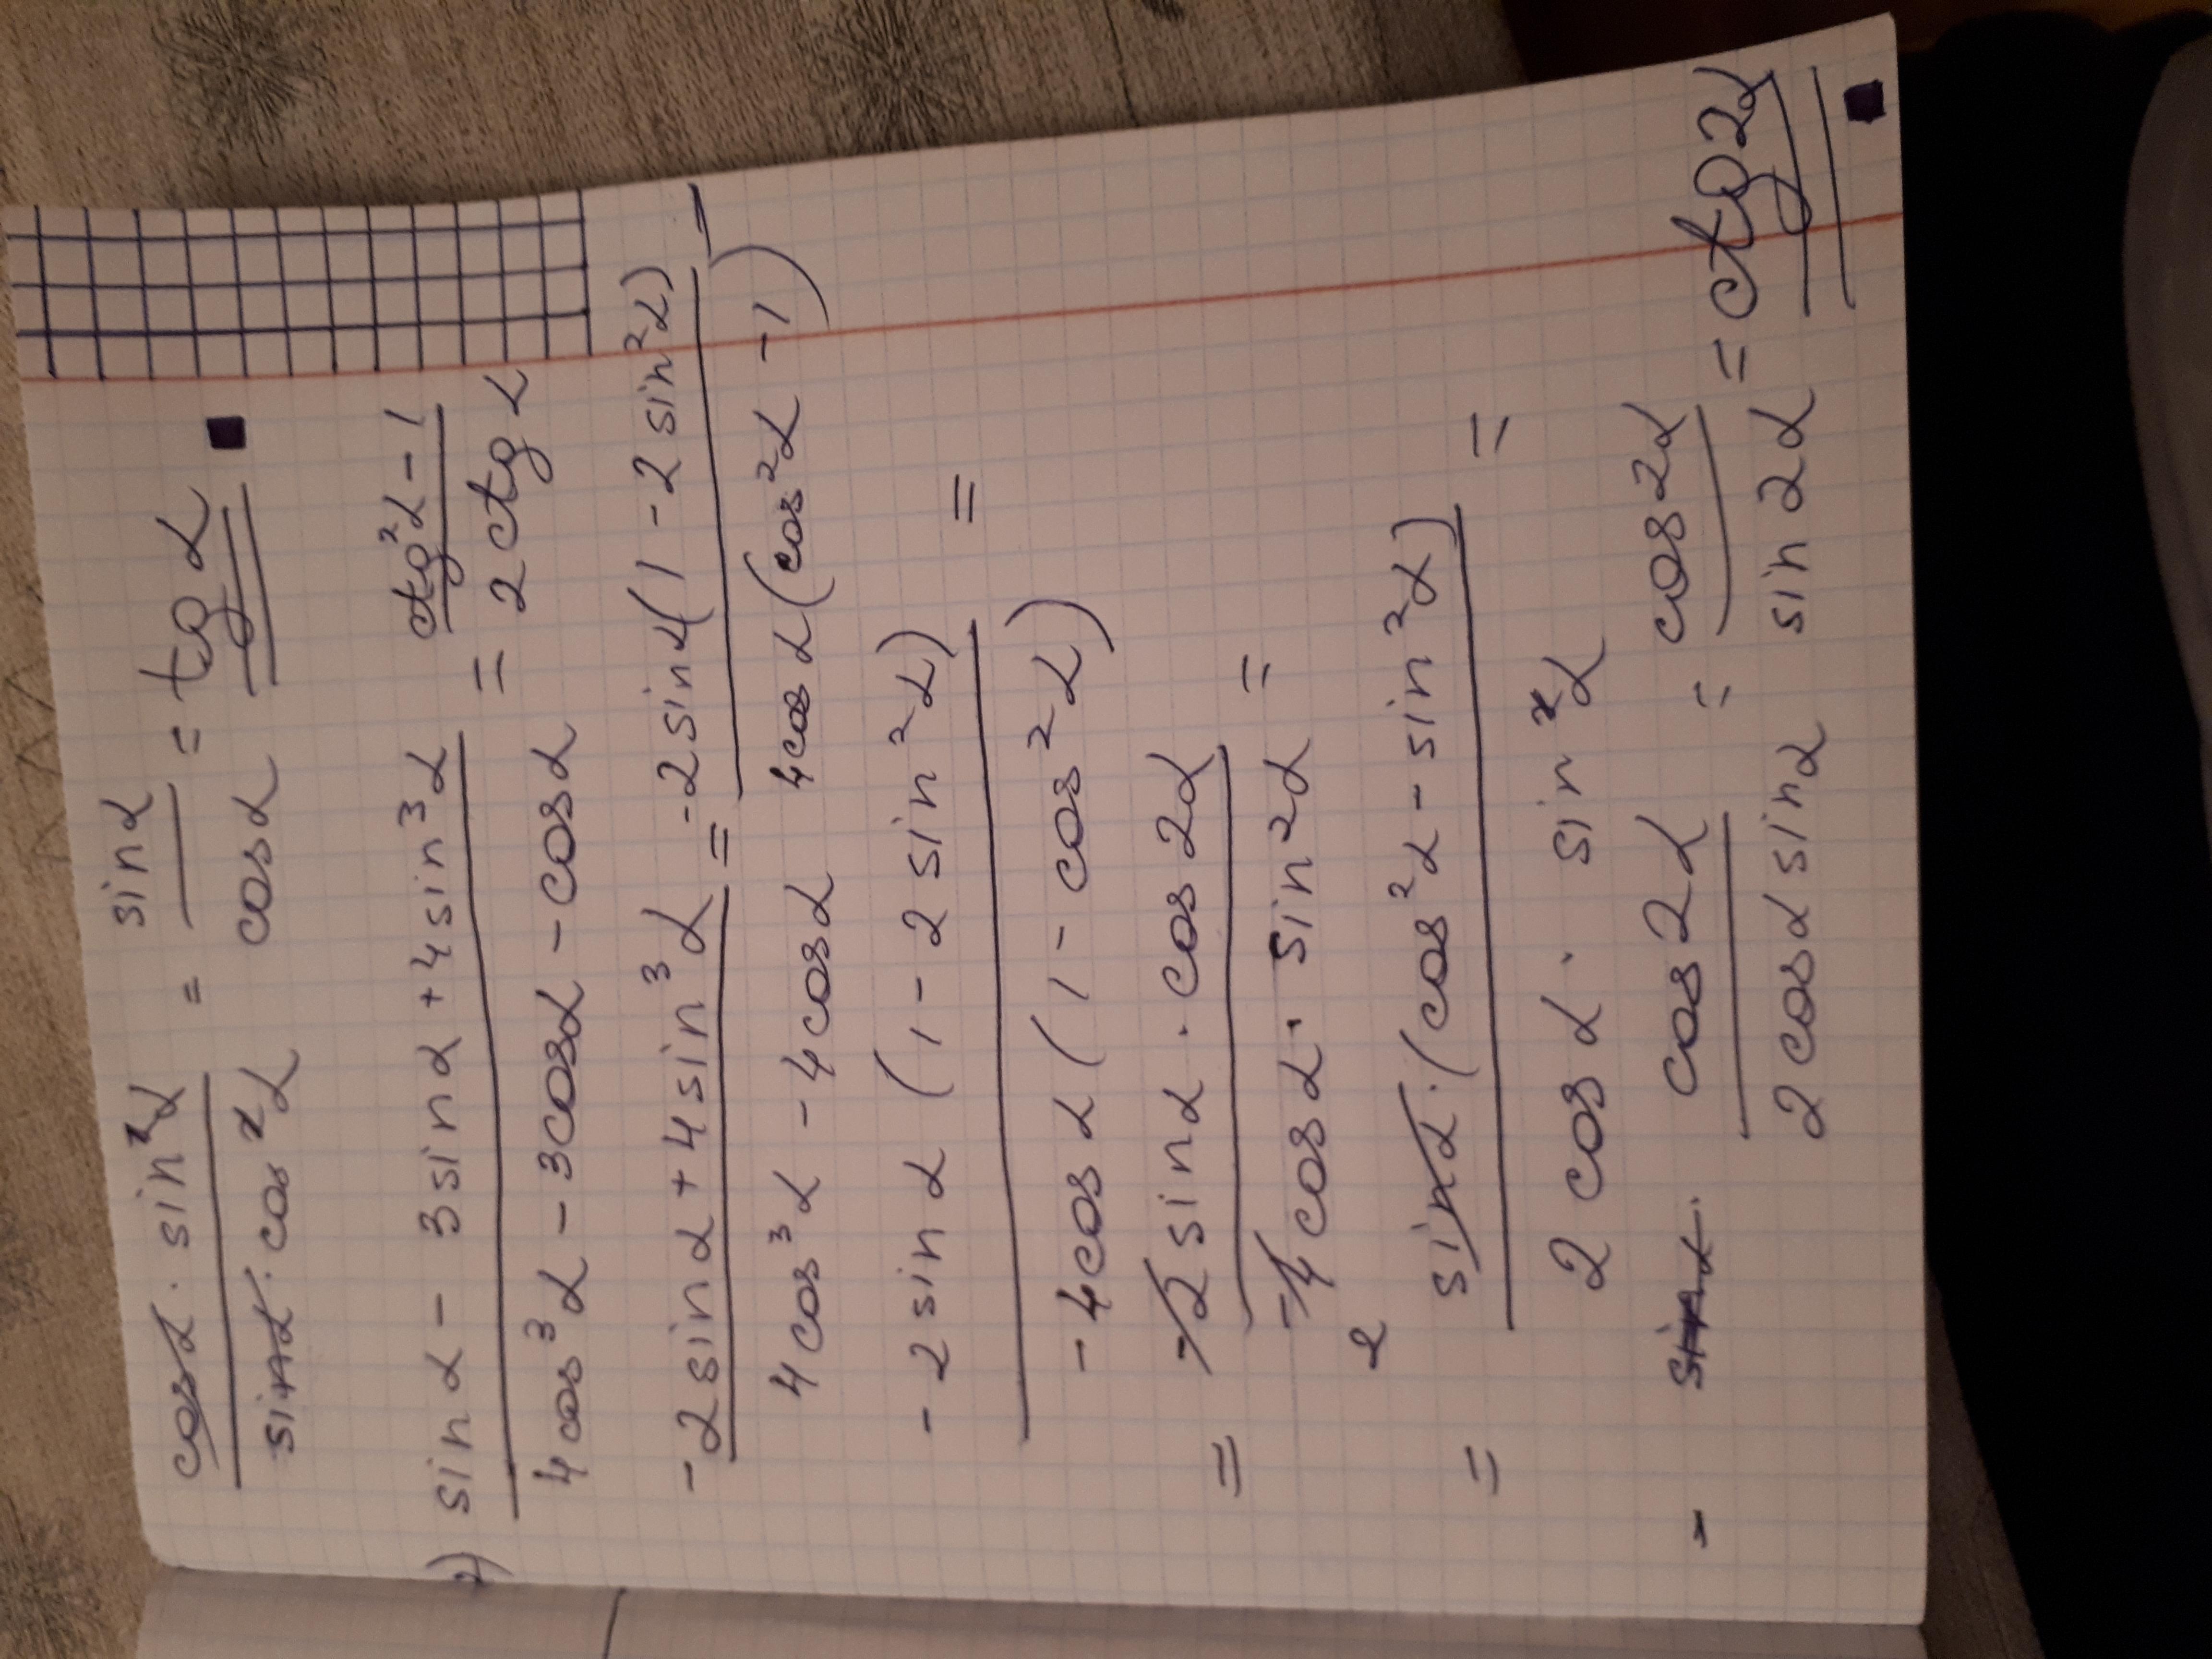 cosα · sin²α / sinα · cos²α = sinα / cosα = tg α
2) sin α - 3 sin α + 4 sin³α / 4 cos³α - 3cosα - cosα = ctg²α - 1 / 2 ctg α
-2 sin α + 4 sin³α / 4 cos³α - 4 cosα = -2 sin α (1 - 2 sin²α) / 4 cos α (cos²α - 1) =
-2 sin α (1 - 2 sin²α) / -4 cos α (1 - cos²α) =
= -2 sin α · cos 2α / -4 cos α · sin²α =
2
= sin α · (cos²α - sin²α) / 2 cos α · sin²α =
= cos 2α / 2 cosα sinα = cos 2α / sin 2α = ctg 2α